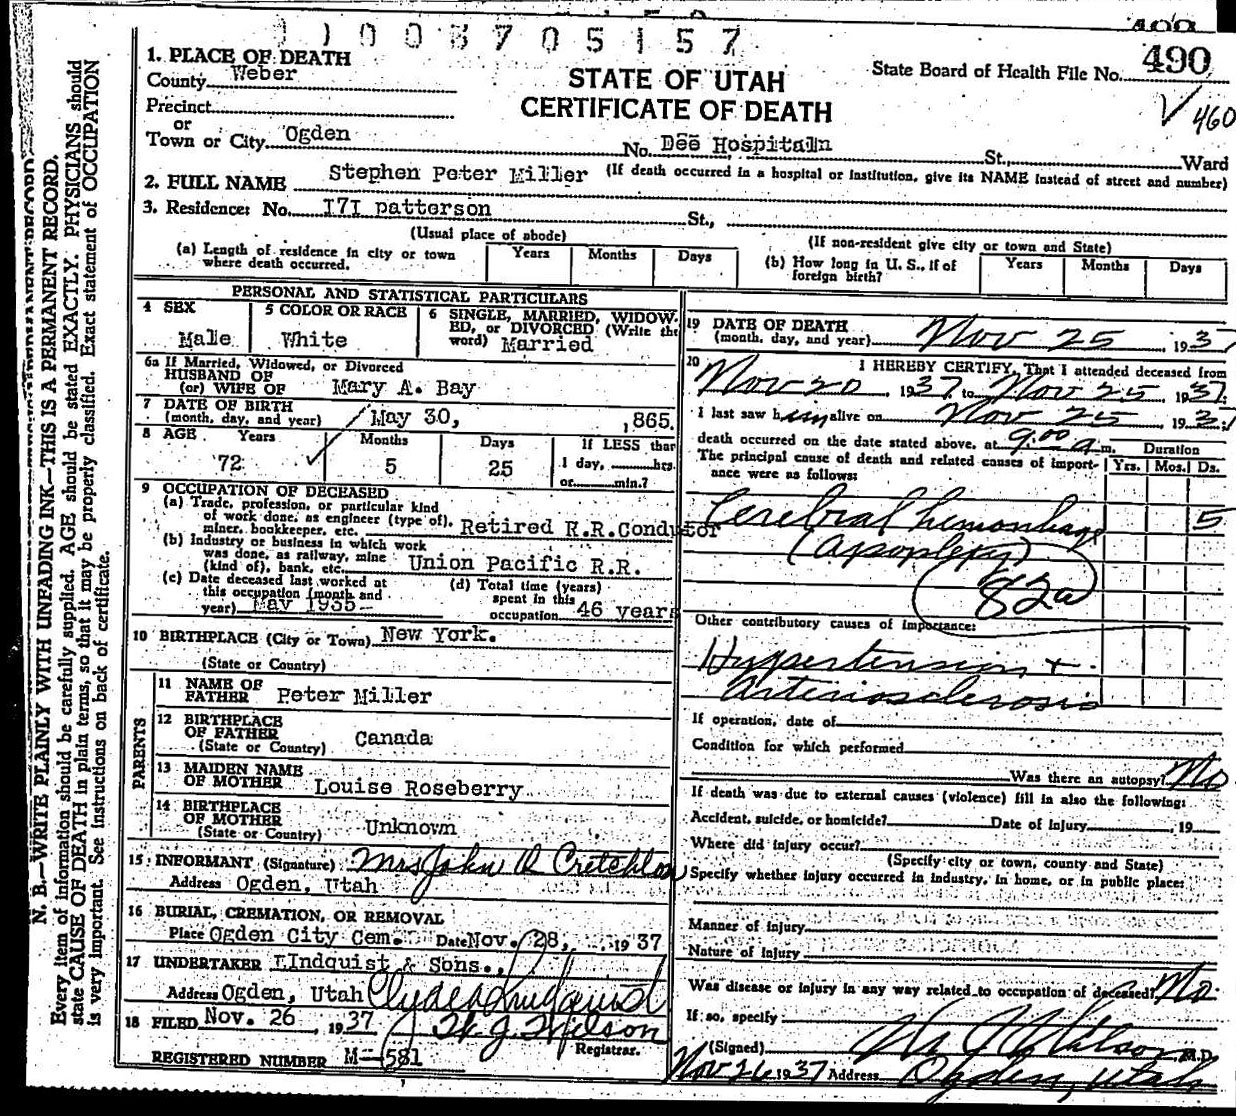 1 1 0 0 3 7 0 5 1 5 7
1. PLACE OF DEATH
County Weber
Precinct
or
Town or City Ogden
STATE OF UTAH
CERTIFICATE OF DEATH
State Board of Health File No. 490
460
No. Dee Hospitaln St., Ward
2. FULL NAME Stephen Peter Miller (If death occurred in a hospital or institution, give its NAME instead of street and number)
3. Residence: No. I7I patterson St.,
(Usual place of abode) (If non-resident give city or town and State)
(a) Length of residence in city or town where death occurred. Years Months Days
(b) How long in U. S., if of foreign birth? Years Months Days
PERSONAL AND STATISTICAL PARTICULARS
4 SEX Male
5 COLOR OR RACE White
6 SINGLE, MARRIED, WIDOWED, or DIVORCED (Write the word) Married
6a If Married, Widowed, or Divorced
HUSBAND OF
(or) WIFE OF Mary A. Bay
7 DATE OF BIRTH
(month, day, and year) May 30, ,865.
8 AGE Years 72 Months 5 Days 25 If LESS than
1 day, hrs.
or min.?
9 OCCUPATION OF DECEASED
(a) Trade, profession, or particular kind
of work done, as engineer (type of),
miner, bookkeeper, etc. Retired R.R.Conductor
(b) Industry or business in which work
was done, as railway, mine
(kind of), bank, etc. Union Pacific R.R.
(c) Date deceased last worked at
this occupation (month and
year) May 1935
(d) Total time (years)
spent in this
occupation 46 years
10 BIRTHPLACE (City or Town) New York.
(State or Country)
PARENTS
11 NAME OF
FATHER Peter Miller
12 BIRTHPLACE
OF FATHER
(State or Country) Canada
13 MAIDEN NAME
OF MOTHER Louise Roseberry
14 BIRTHPLACE
OF MOTHER
(State or Country) Unknown
15 INFORMANT (Signature) Mrs John D Cretchlow
Address Ogden, Utah
16 BURIAL, CREMATION, OR REMOVAL
Place Ogden City Cem. Date Nov. 28, 1937
17 UNDERTAKER LIndquist & Sons.,
Address Ogden, Utah Clyde Lindquist
18 FILED Nov. 26, 1937 W. J. Wilson
Registrar.
REGISTERED NUMBER M—581
19 DATE OF DEATH
(month, day, and year) Nov 25, 1937
20 I HEREBY CERTIFY, That I attended deceased from
Nov 20, 1937, to Nov 25, 1937;
I last saw him alive on Nov 25, 1937;
death occurred on the date stated above, at 9:00 a m. Duration
The principal cause of death and related causes of importance were as follows: Yrs. Mos. Ds.
Cerebral hemorrhage 5
(apoplexy)
82a
Other contributory causes of importance:
Hypertension +
arteriosclerosis
If operation, date of
Condition for which performed
Was there an autopsy? No
If death was due to external causes (violence) fill in also the following:
Accident, suicide, or homicide? Date of injury , 19
Where did injury occur?
(Specify city or town, county and State)
Specify whether injury occurred in industry, in home, or in public place:
Manner of injury
Nature of injury
Was disease or injury in any way related to occupation of deceased? No.
If so, specify
(Signed) W J Wilson M.D.
Nov 26 1937 Address Ogden, Utah
N. B.—WRITE PLAINLY WITH UNFADING INK—THIS IS A PERMANENT RECORD.
Every item of information should be carefully supplied. AGE should be stated EXACTLY. PHYSICIANS should
state CAUSE OF DEATH in plain terms, so that it may be properly classified. Exact statement of OCCUPATION
is very important. See instructions on back of certificate.